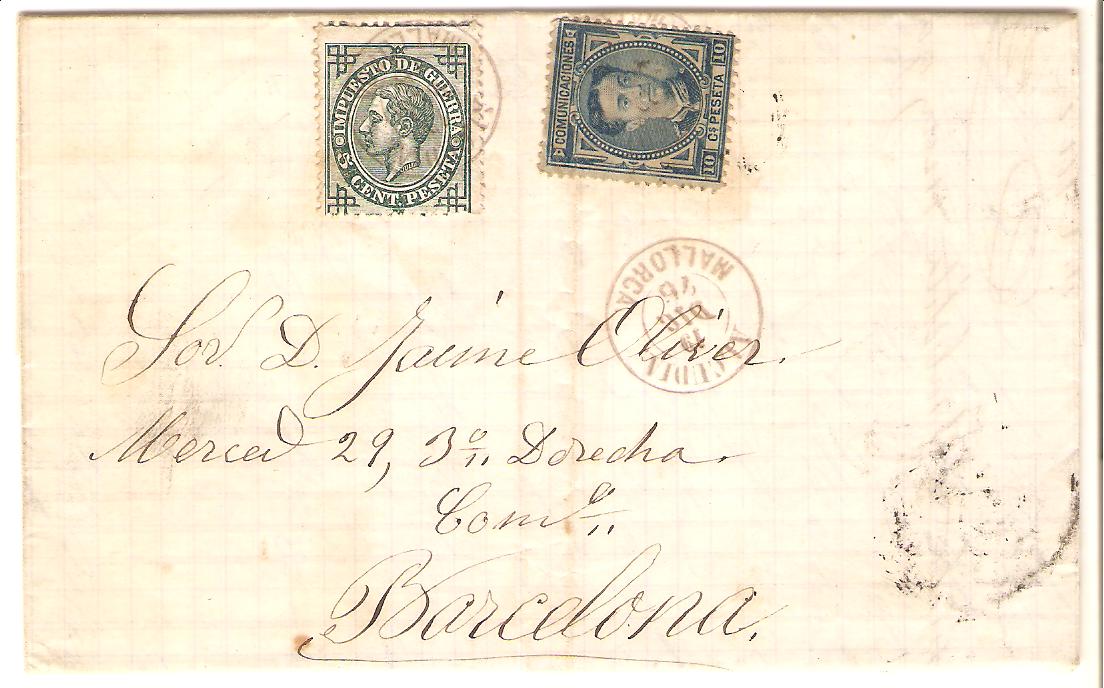 IMPUESTO DE GUERRA
5 CENT. PESETA
COMUNICACIONES
10 Cs PESETA 10
MALLORCA
76
Sor. D. Jaime Oliver.
Merced 29, 3º Derecha.
Barcelona.